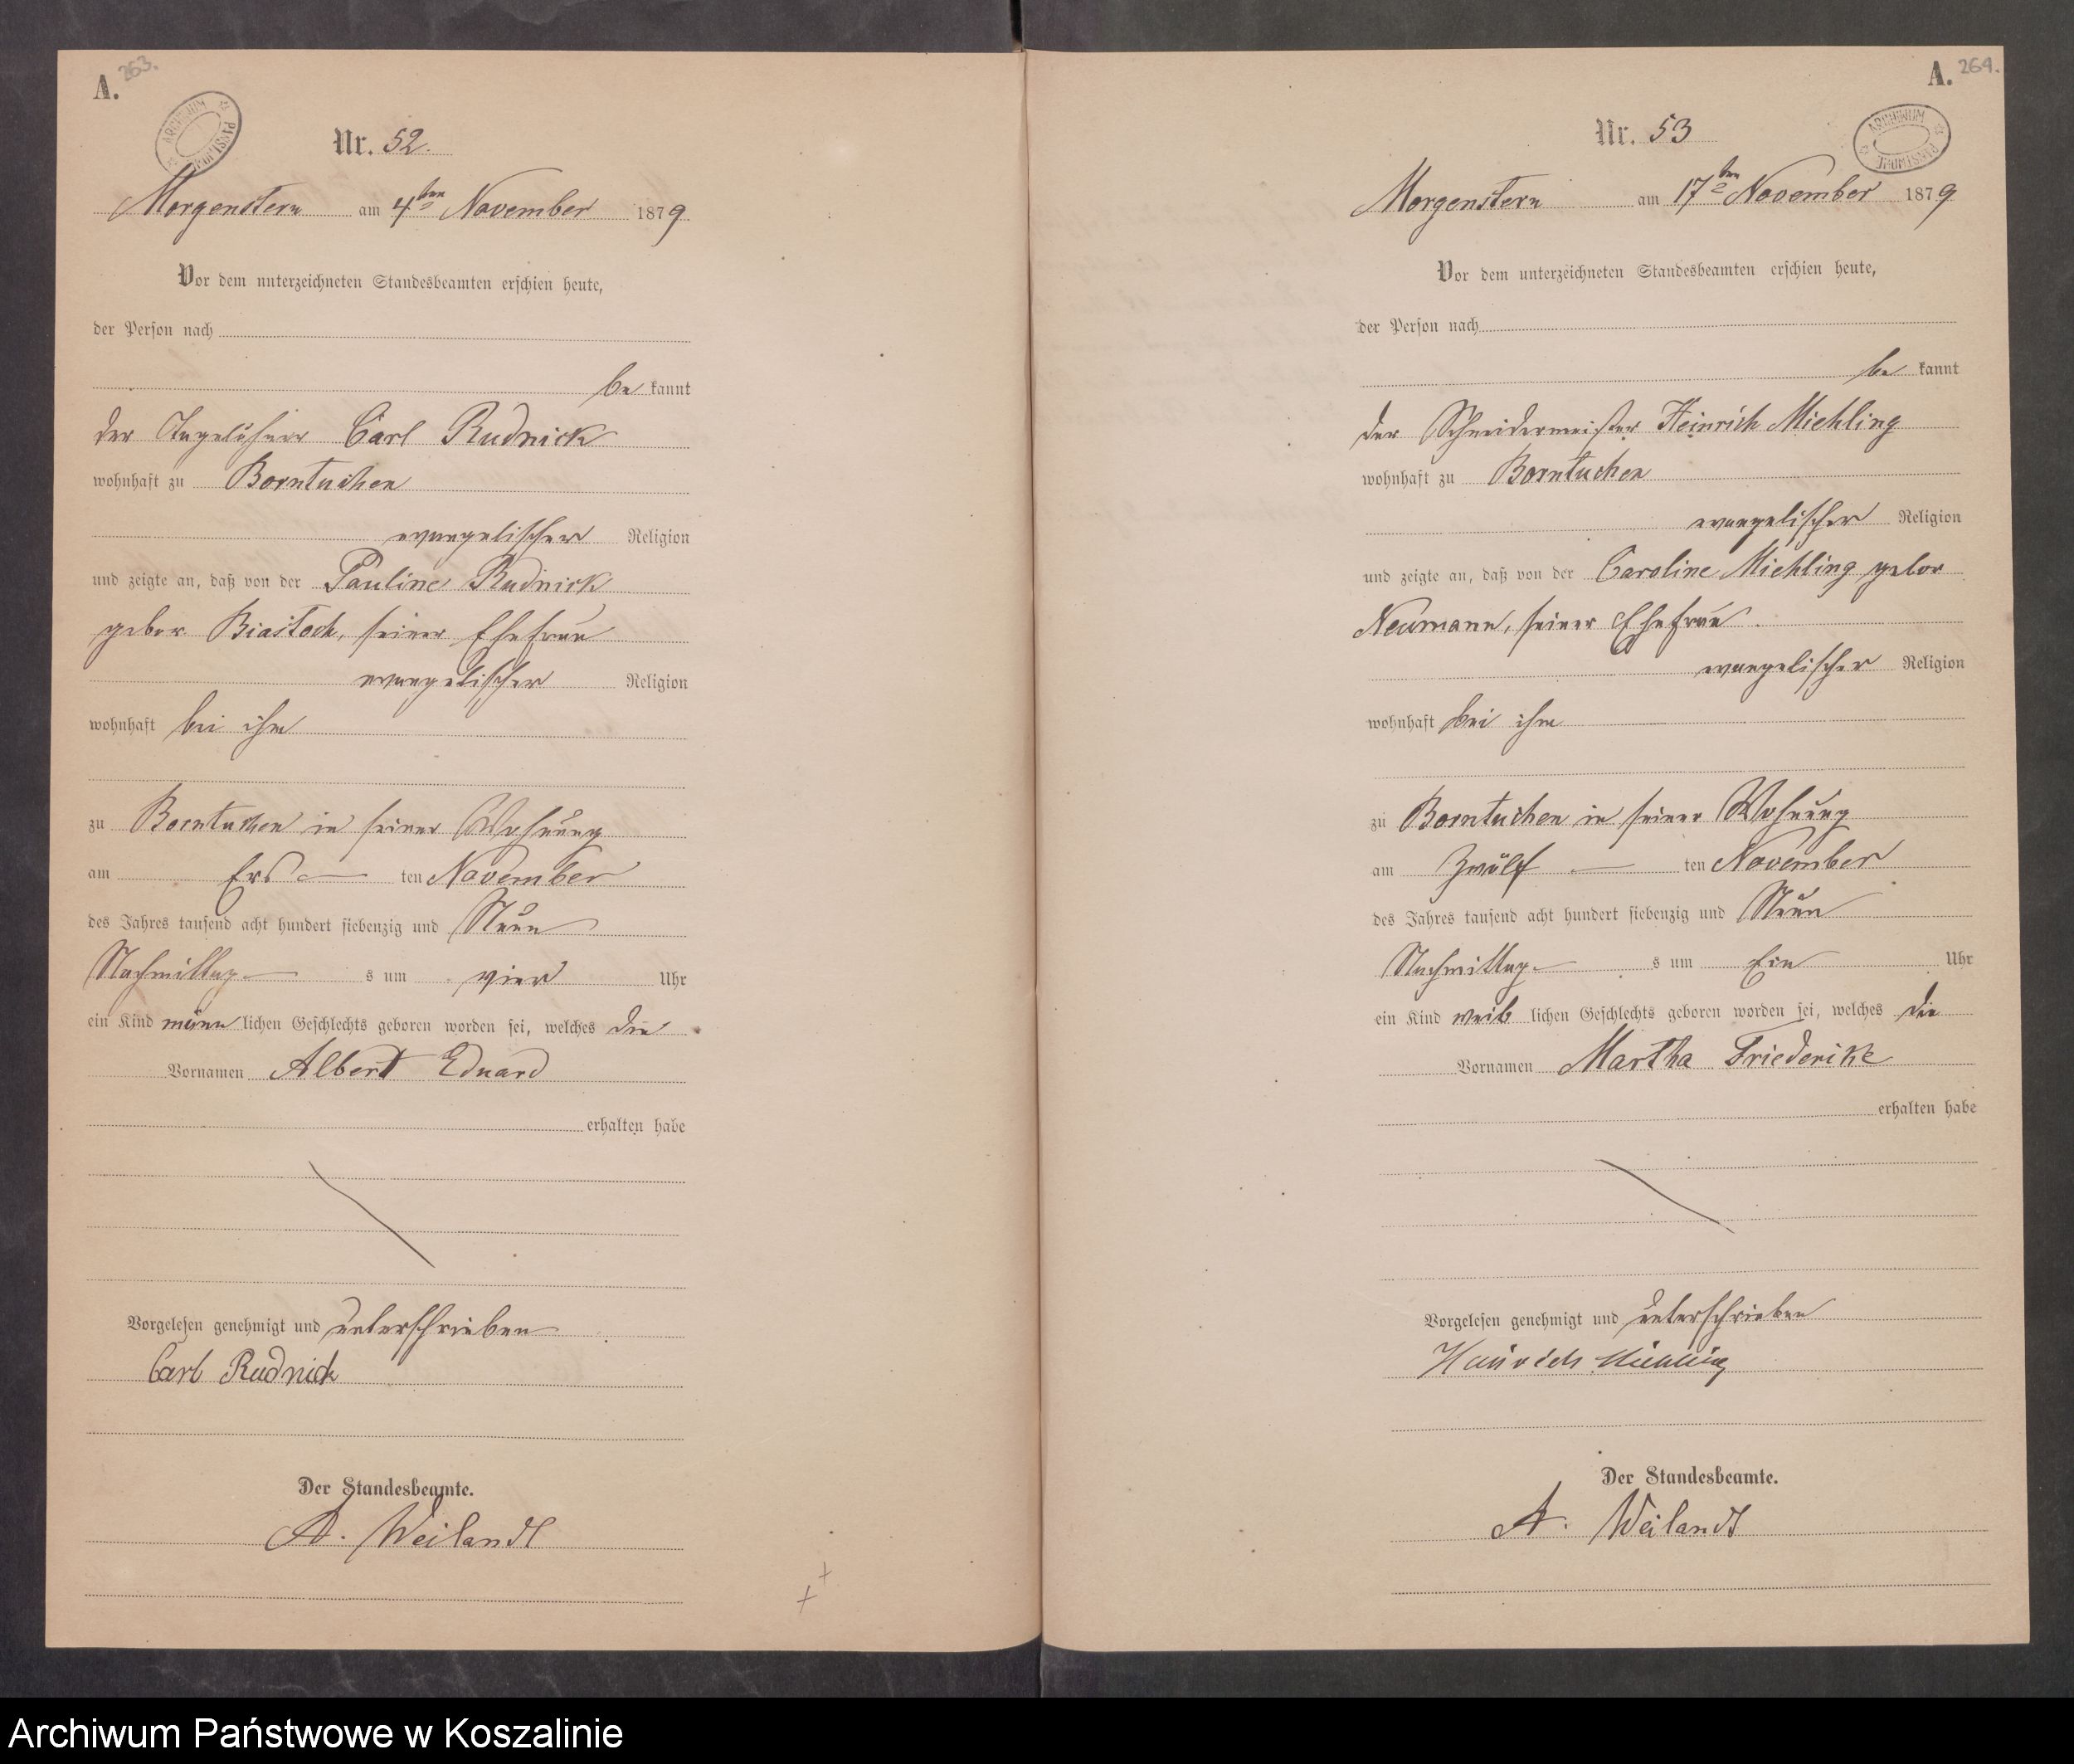 A. 263.
ARCHIWUM PAŃSTWOWE
Nr. 52.
Morgenstern am 4ten November 1879
Vor dem unterzeichneten Standesbeamten erschien heute,
der Person nach
be kannt
der Tagelöhner Carl Rudnick
wohnhaft zu Borntuchen
evangelischer Religion
und zeigte an, daß von der Pauline Rudnick
gebor. Biastoch, seiner Ehefrau
evangelischer Religion
wohnhaft bei ihm
zu Borntuchen in seiner Wohnung
am Ers ten November
des Jahres tausend acht hundert siebenzig und Neun
Nachmittag s um vier Uhr
ein Kind männ lichen Geschlechts geboren worden sei, welches die
Vornamen Albert Eduard
erhalten habe
Vorgelesen genehmigt und unterschrieben
Carl Rudnick
Der Standesbeamte.
A. Weilandt
A. 264.
ARCHIWUM PAŃSTWOWE
Nr. 53
Morgenstern am 17ten November 1879
Vor dem unterzeichneten Standesbeamten erschien heute,
der Person nach
be kannt
der Schneidermeister Heinrich Miehling
wohnhaft zu Borntuchen
evangelischer Religion
und zeigte an, daß von der Caroline Miehling gebor
Neumann, seiner Ehefrau.
evangelischer Religion
wohnhaft bei ihm
zu Borntuchen in seiner Wohnung
am Zwölf ten November
des Jahres tausend acht hundert siebenzig und Neun
Nachmittag s um Ein Uhr
ein Kind weib lichen Geschlechts geboren worden sei, welches die
Vornamen Martha Friederike
erhalten habe
Vorgelesen genehmigt und unterschrieben
Heinrich Miehling
Der Standesbeamte.
A. Weilandt
Archiwum Państwowe w Koszalinie